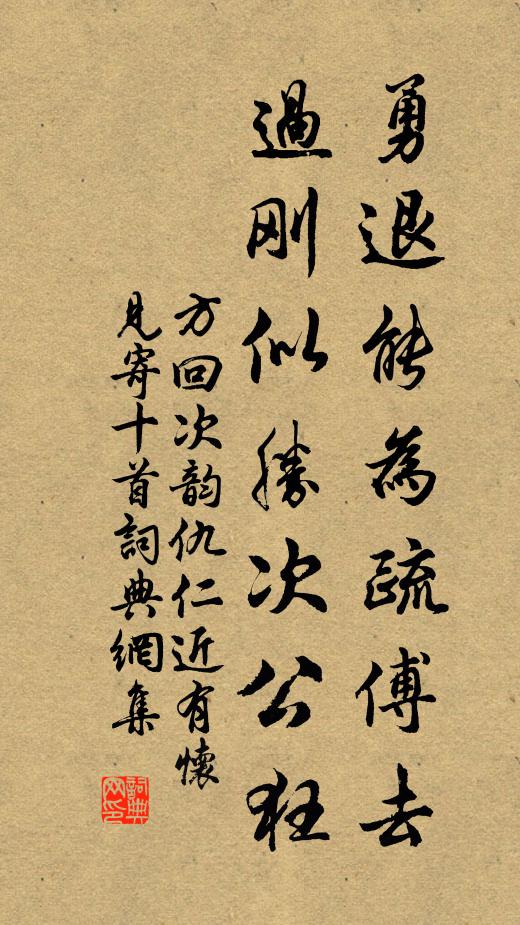 勇退能為疏傅去
過剛似勝次公狂
方回次韵仇仁近有懷
見寄十首詞典網集
詞典
网印